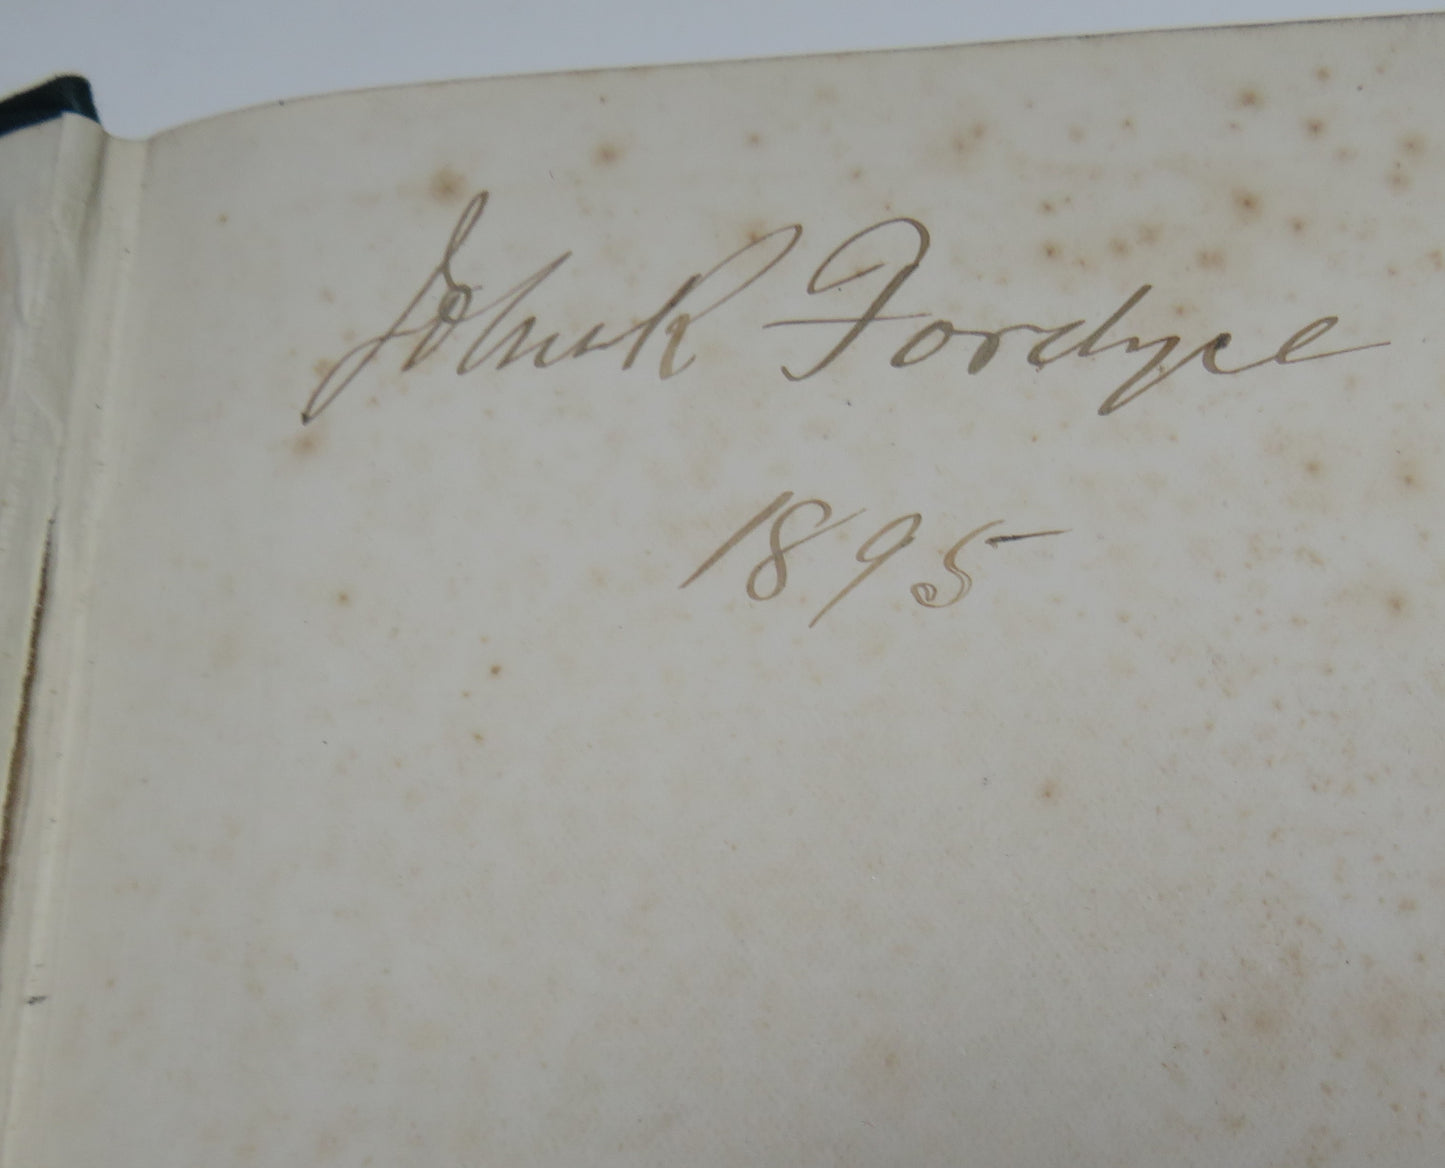 John R Fordyce
1895